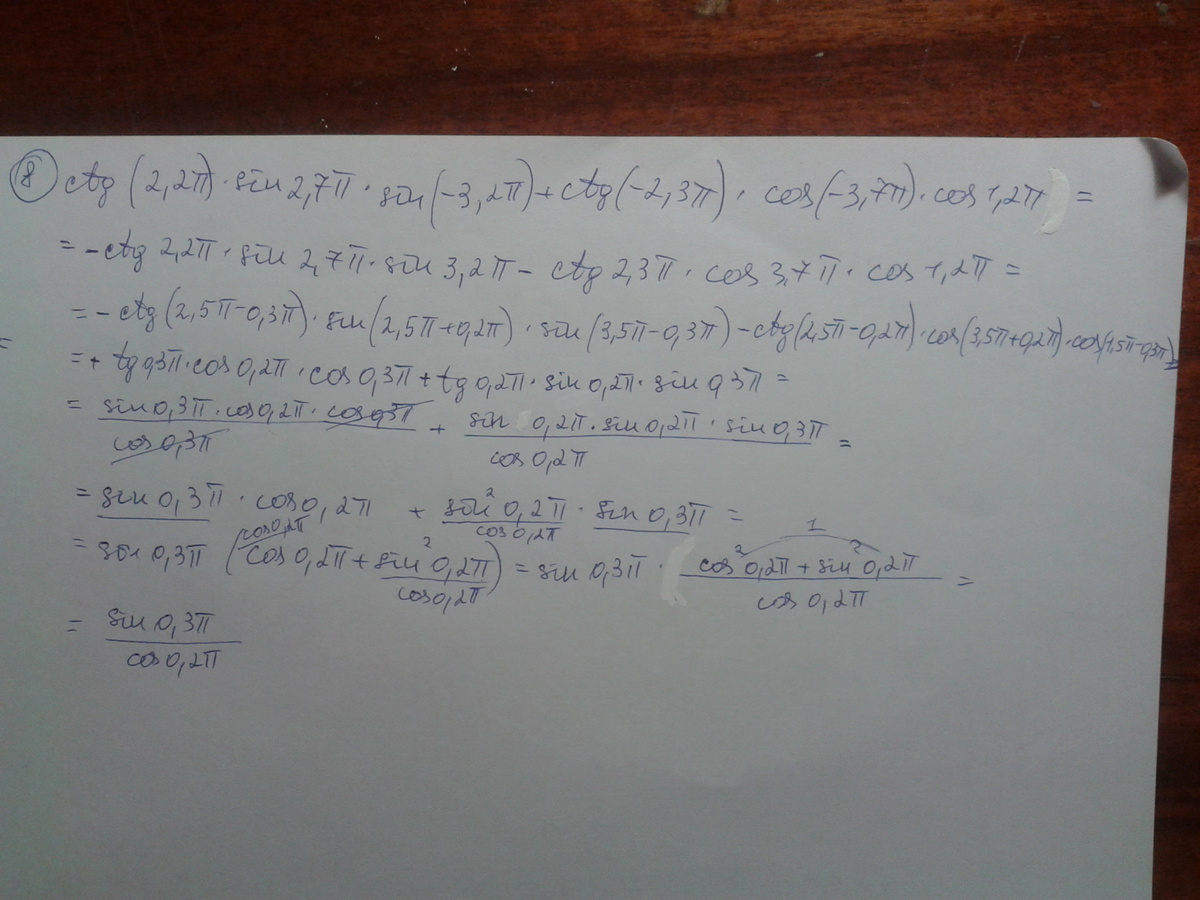 8 ctg (2,2π)·sin 2,7π · sin(-3,2π)+ctg(-2,3π) · cos(-3,7π)·cos 1,2π =
= -ctg 2,2π · sin 2,7π·sin 3,2π - ctg 2,3π · cos 3,7π · cos 1,2π =
= -ctg(2,5π-0,3π)·sin(2,5π+0,2π) · sin(3,5π-0,3π)-ctg(2,5π-0,2π)·cos(3,5π+0,2π)·cos(1,5π-0,3π)=
=
= + tg 0,3π·cos 0,2π · cos 0,3π + tg 0,2π · sin 0,2π · sin 0,3π =
= sin 0,3π · cos 0,2π · cos 0,3π / cos 0,3π + sin 0,2π · sin 0,2π · sin 0,3π / cos 0,2π =
= sin 0,3π · cos 0,2π + sin² 0,2π / cos 0,2π · sin 0,3π =
= sin 0,3π (cos 0,2π / cos 0,2π + sin² 0,2π / cos 0,2π) = sin 0,3π · cos² 0,2π + sin² 0,2π / cos 0,2π = 1
= sin 0,3π / cos 0,2π